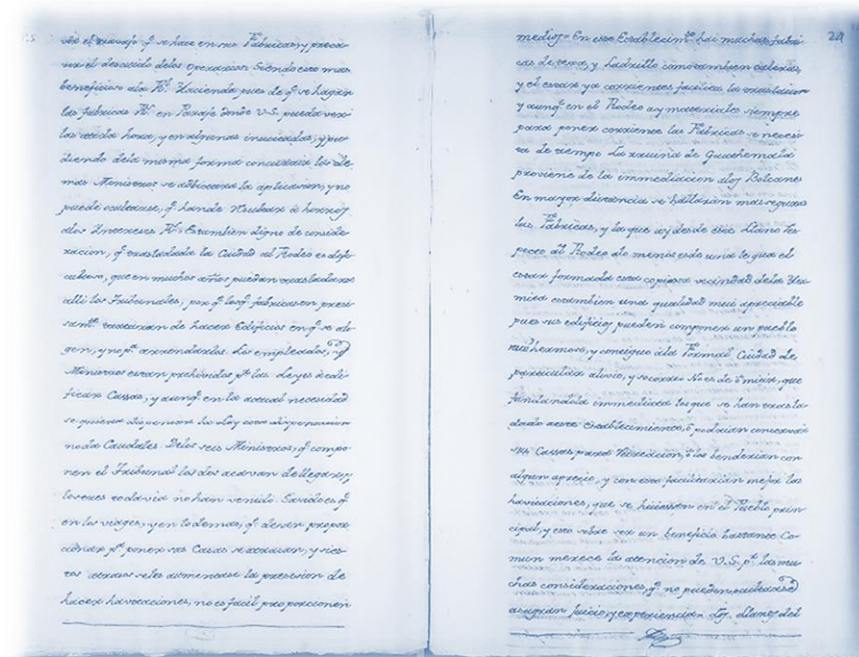 en el travajo q.e se hace en sus Fabricas, y preca-
ver el descuido delos Operarios. Siendo esto mas
beneficioso ala R.l Hacienda pues de q.e se hagan
las fabricas R.s en Paraje donde V.S. pueda ver-
las acada hora, y en algunas
diendo dela misma forma los de-
mas Ministros se la aplicacion, y no
puede ocultarse, q.e hande à horros
alos Yntereses R.s Estambien digno de conside-
racion, q.e trasladada la Ciudad al Rodeo es difi-
cultoso, que en muchos años puedan trasladarse
alli los Tribunales, por q.e los q.e fabricasen preci-
sam.te tratarian de hacer Edificios en q.e se alo-
gen, y no p.a arrendarlos. Los empleados, y
Ministros estan prohividos p.r las Leyes de edi-
ficar Cassas, y aunq.e en la actual necesidad
se quiera dispensar la Ley esta dispensacion
no da Caudales. Delos seis Ministros, q.e compo-
nen el Tribunal los dos acavan de llegar, y
los tres todavia no han venido. Ento es q.e
en los viages, y en lo demas, q.e deven propor-
cionar p.a poner sus Casas se atrasan, y si es-
tos atrasos seles aumentase la precision de
hacer havitaciones, no es facil proporcionen
24
medios= En este Establecim.to hai muchas fabri-
cas de texa, y Ladrillo como tambien caleras,
y el estar ya corrientes facilita la traslacion
y aunq.e en el Rodeo ay materiales siempre
para poner corriente las Fabricas se necesi-
ta de tiempo La rruina de Guathemala
proviene de la immediacion alos Bolcanes
En mayor distancia se hallarán mas seguras
las Fabricas, y la que ay desde este Llano res-
pecto àl Rodeo alo menos es de una legua el
estar formada esta copiosa vecindad dela Her-
mita es tambien una qualidad mui apreciable
pues sus edificios pueden componer un pueblo
mui hermoso, y consigue ala Formal Ciudad de
particular alivio, y socorro= No es de omitir, que
fundandola immediata los que se han trasla-
dado aeste establecimiento, ò podrian conservar
sus Cassas para Recreacion, ò las benderian con
algun aprecio, y con esto facilitarian mejor las
havitaciones, que se huiessen en el Pueblo prin-
cipal, y esto sobre ser un beneficio bastante Co-
mun merece la atencion de V.S. p.r las mu-
chas consideraciones, q.e no pueden ocultarse
asu gran Juicio, y experiencia= Los Llanos del